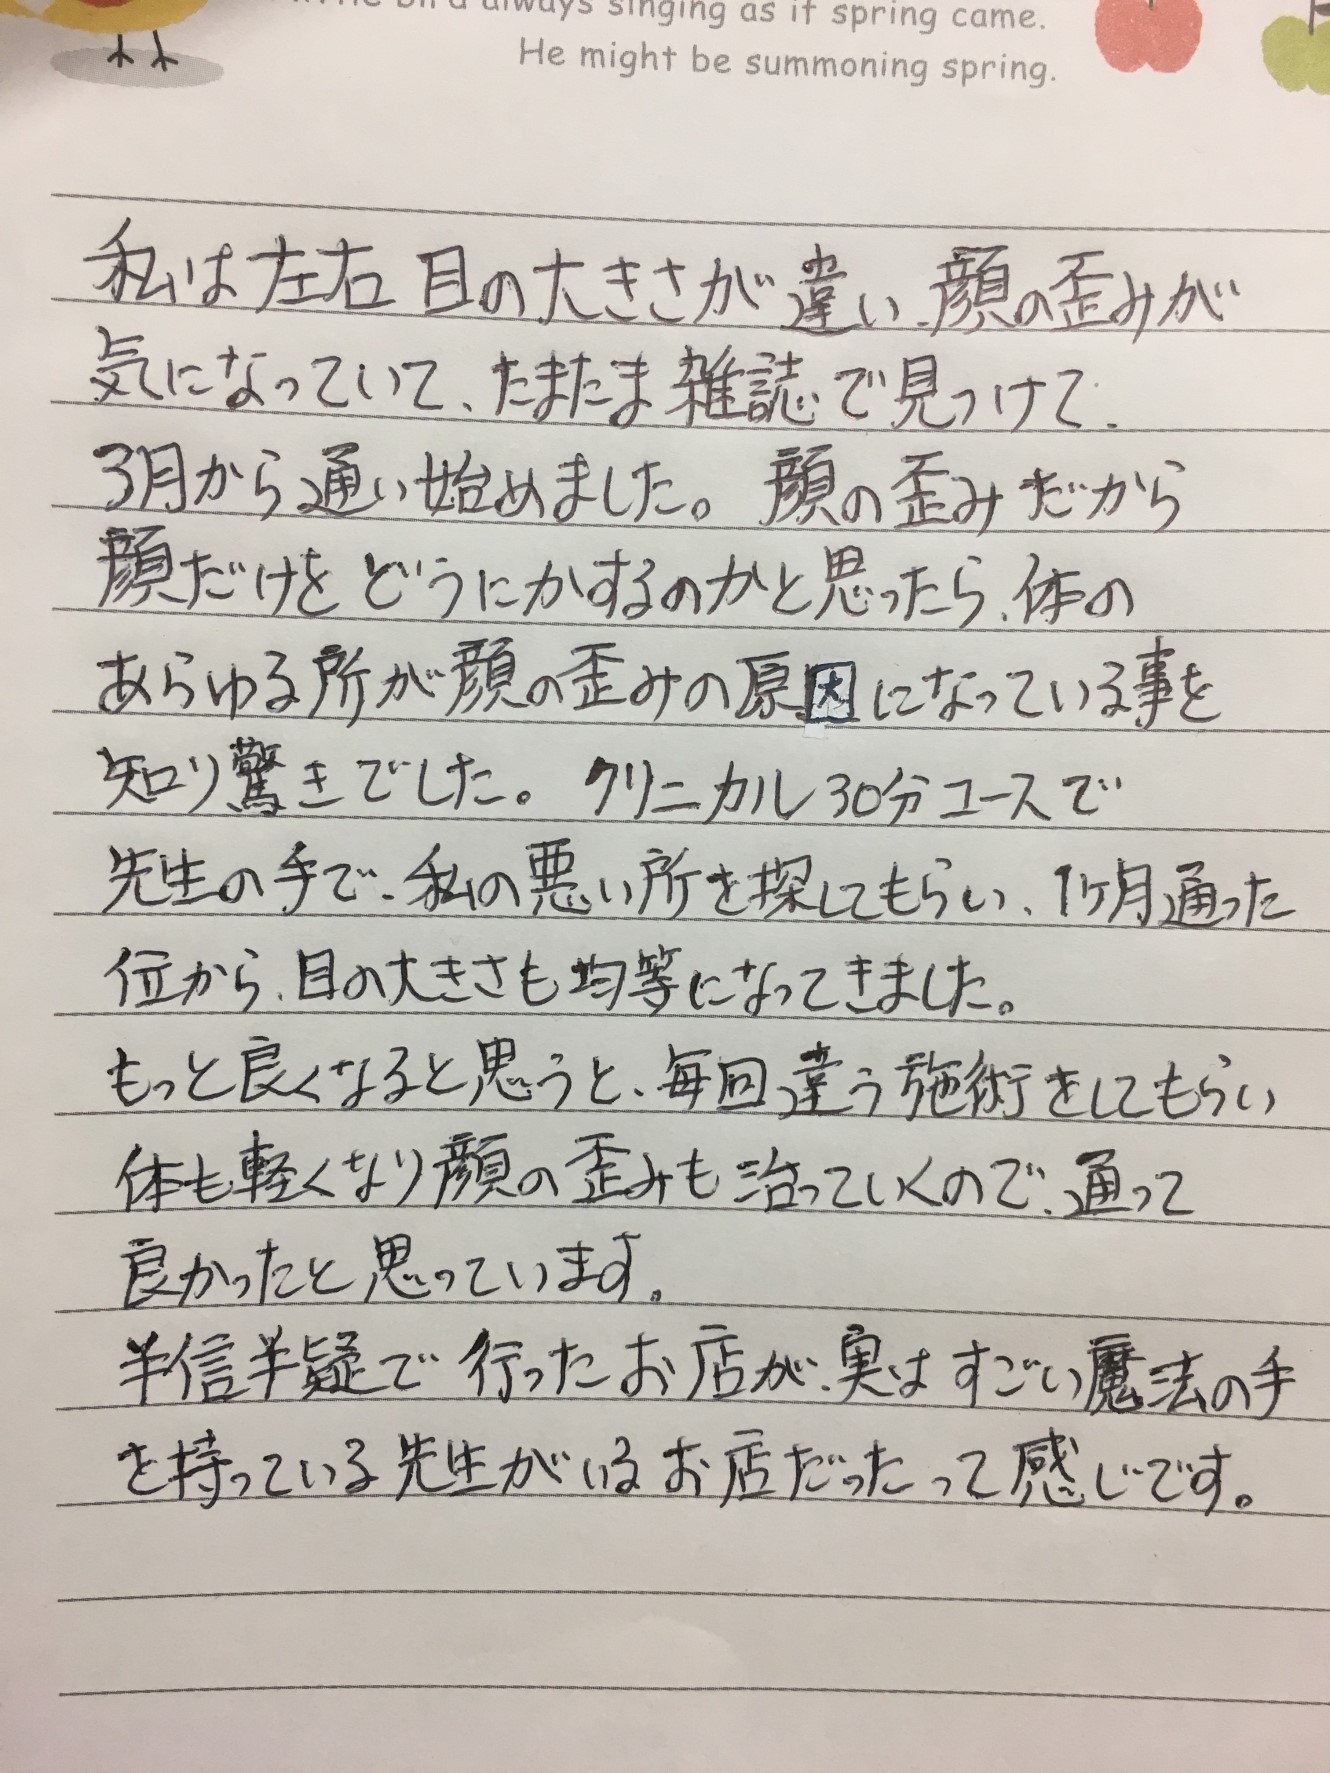 always singing as if spring came.
He might be summoning spring.
私は左右目の大きさが違い、顔の歪みが
気になっていて、たまたま雑誌で見つけて、
3月から通い始めました。顔の歪みだから
顔だけをどうにかするのかと思ったら、体の
あらゆる所が顔の歪みの原因になっている事を
知り驚きでした。クリニカル30分コースで
先生の手で、私の悪い所を探してもらい、1ヶ月通った
位から、目の大きさも均等になってきました。
もっと良くなると思うと、毎回違う施術をしてもらい
体も軽くなり顔の歪みも治っていくので、通って
良かったと思っています。
半信半疑で行ったお店が、実はすごい魔法の手
を持っている先生がいるお店だったって感じです。